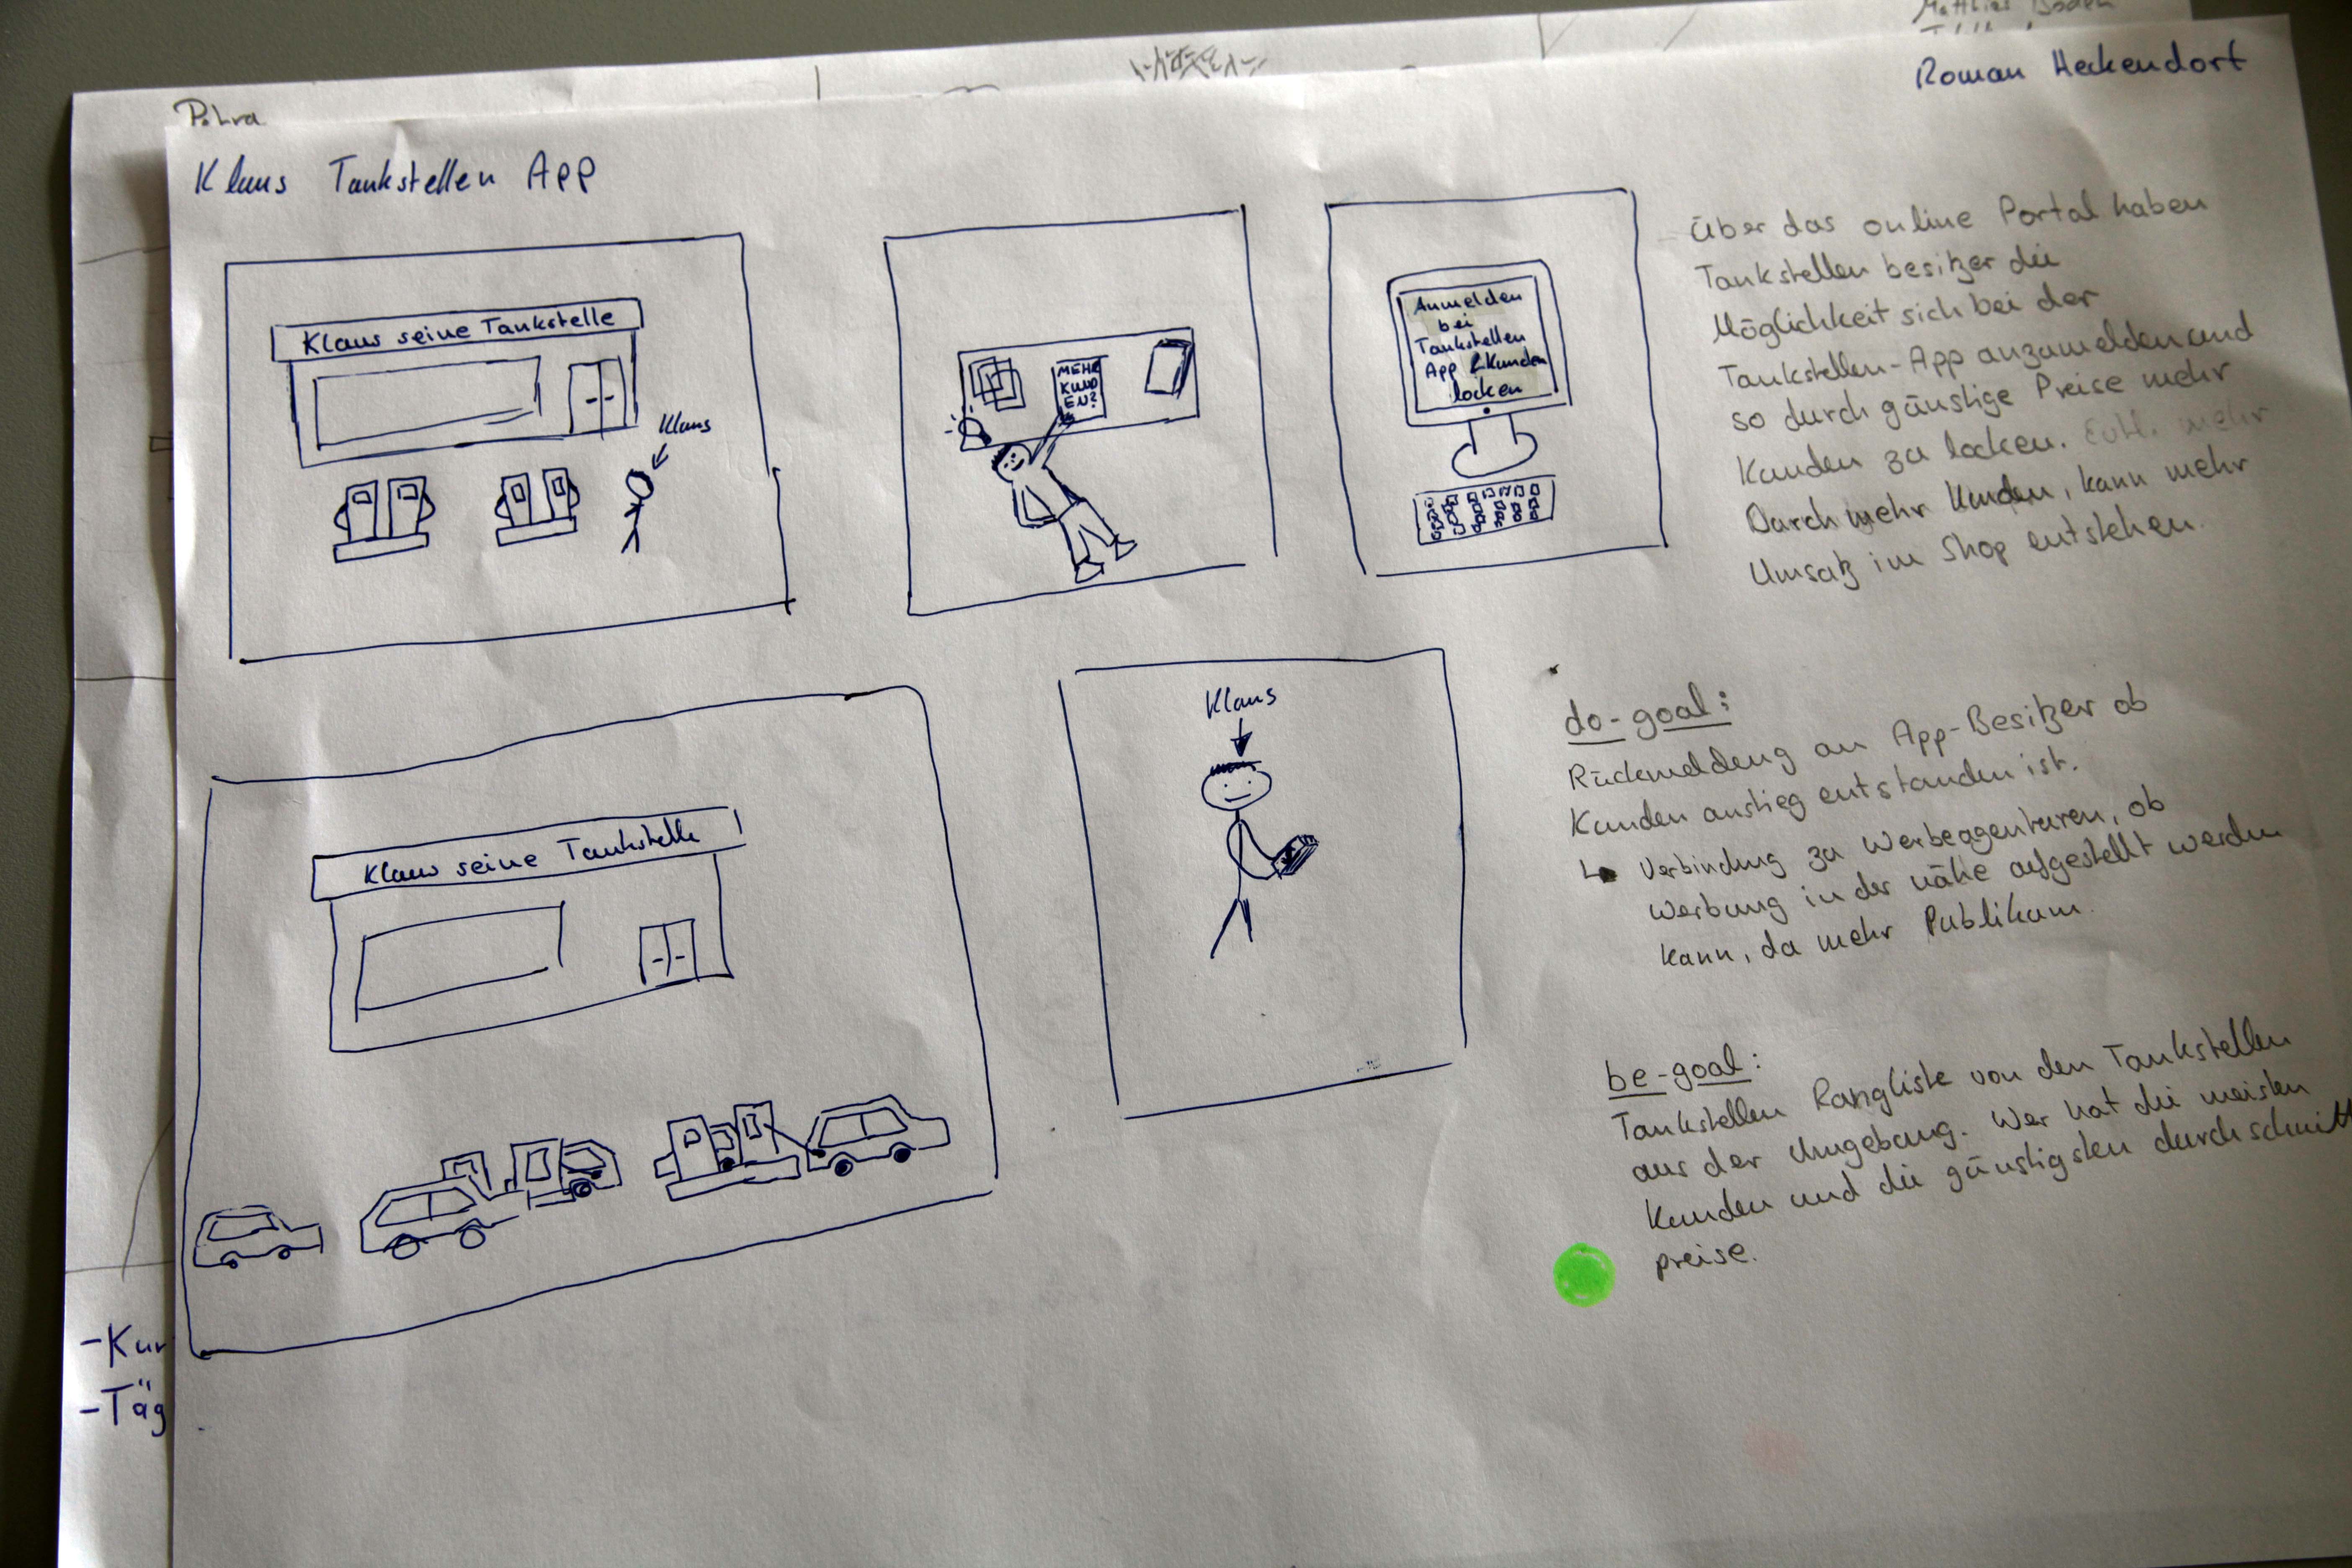 Matthias Boden
Roman Heckendorf
Petra
Klaus Tankstellen App
Klaus seine Tankstelle
Klaus
MEHR
KUND
EN?
Anmelden
bei
Tankstellen
App & Kunden
locken
Über das online Portal haben
Tankstellen besitzer die
Möglichkeit sich bei der
Tankstellen-App anzumelden und
so durch günstige Preise mehr
Kunden zu locken. Evtl. mehr
Durch mehr Kunden, kann mehr
Umsatz im Shop entstehen.
Klaus seine Tankstelle
Klaus
do-goal:
Rückmeldung an App-Besitzer ob
Kunden anstieg entstanden ist.
↳ Verbindung zu Werbeagenturen, ob
Werbung in der nähe aufgestellt werden
kann, da mehr Publikum.
be-goal:
Tankstellen Rangliste von den Tankstellen
aus der Umgebung. Wer hat die meisten
Kunden und die günstigsten durchschnitt
preise.
-Kur
-Täg